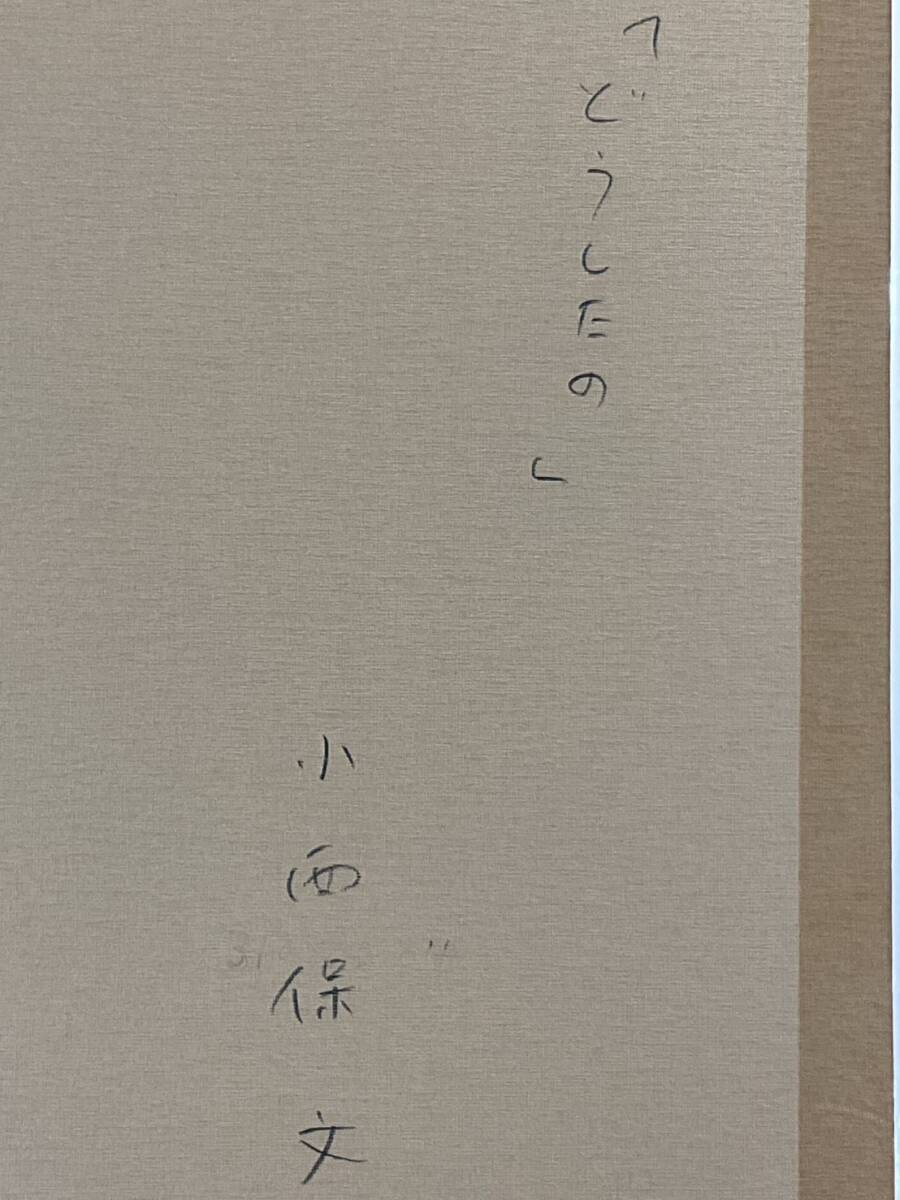 「どうしたの」
小西保文